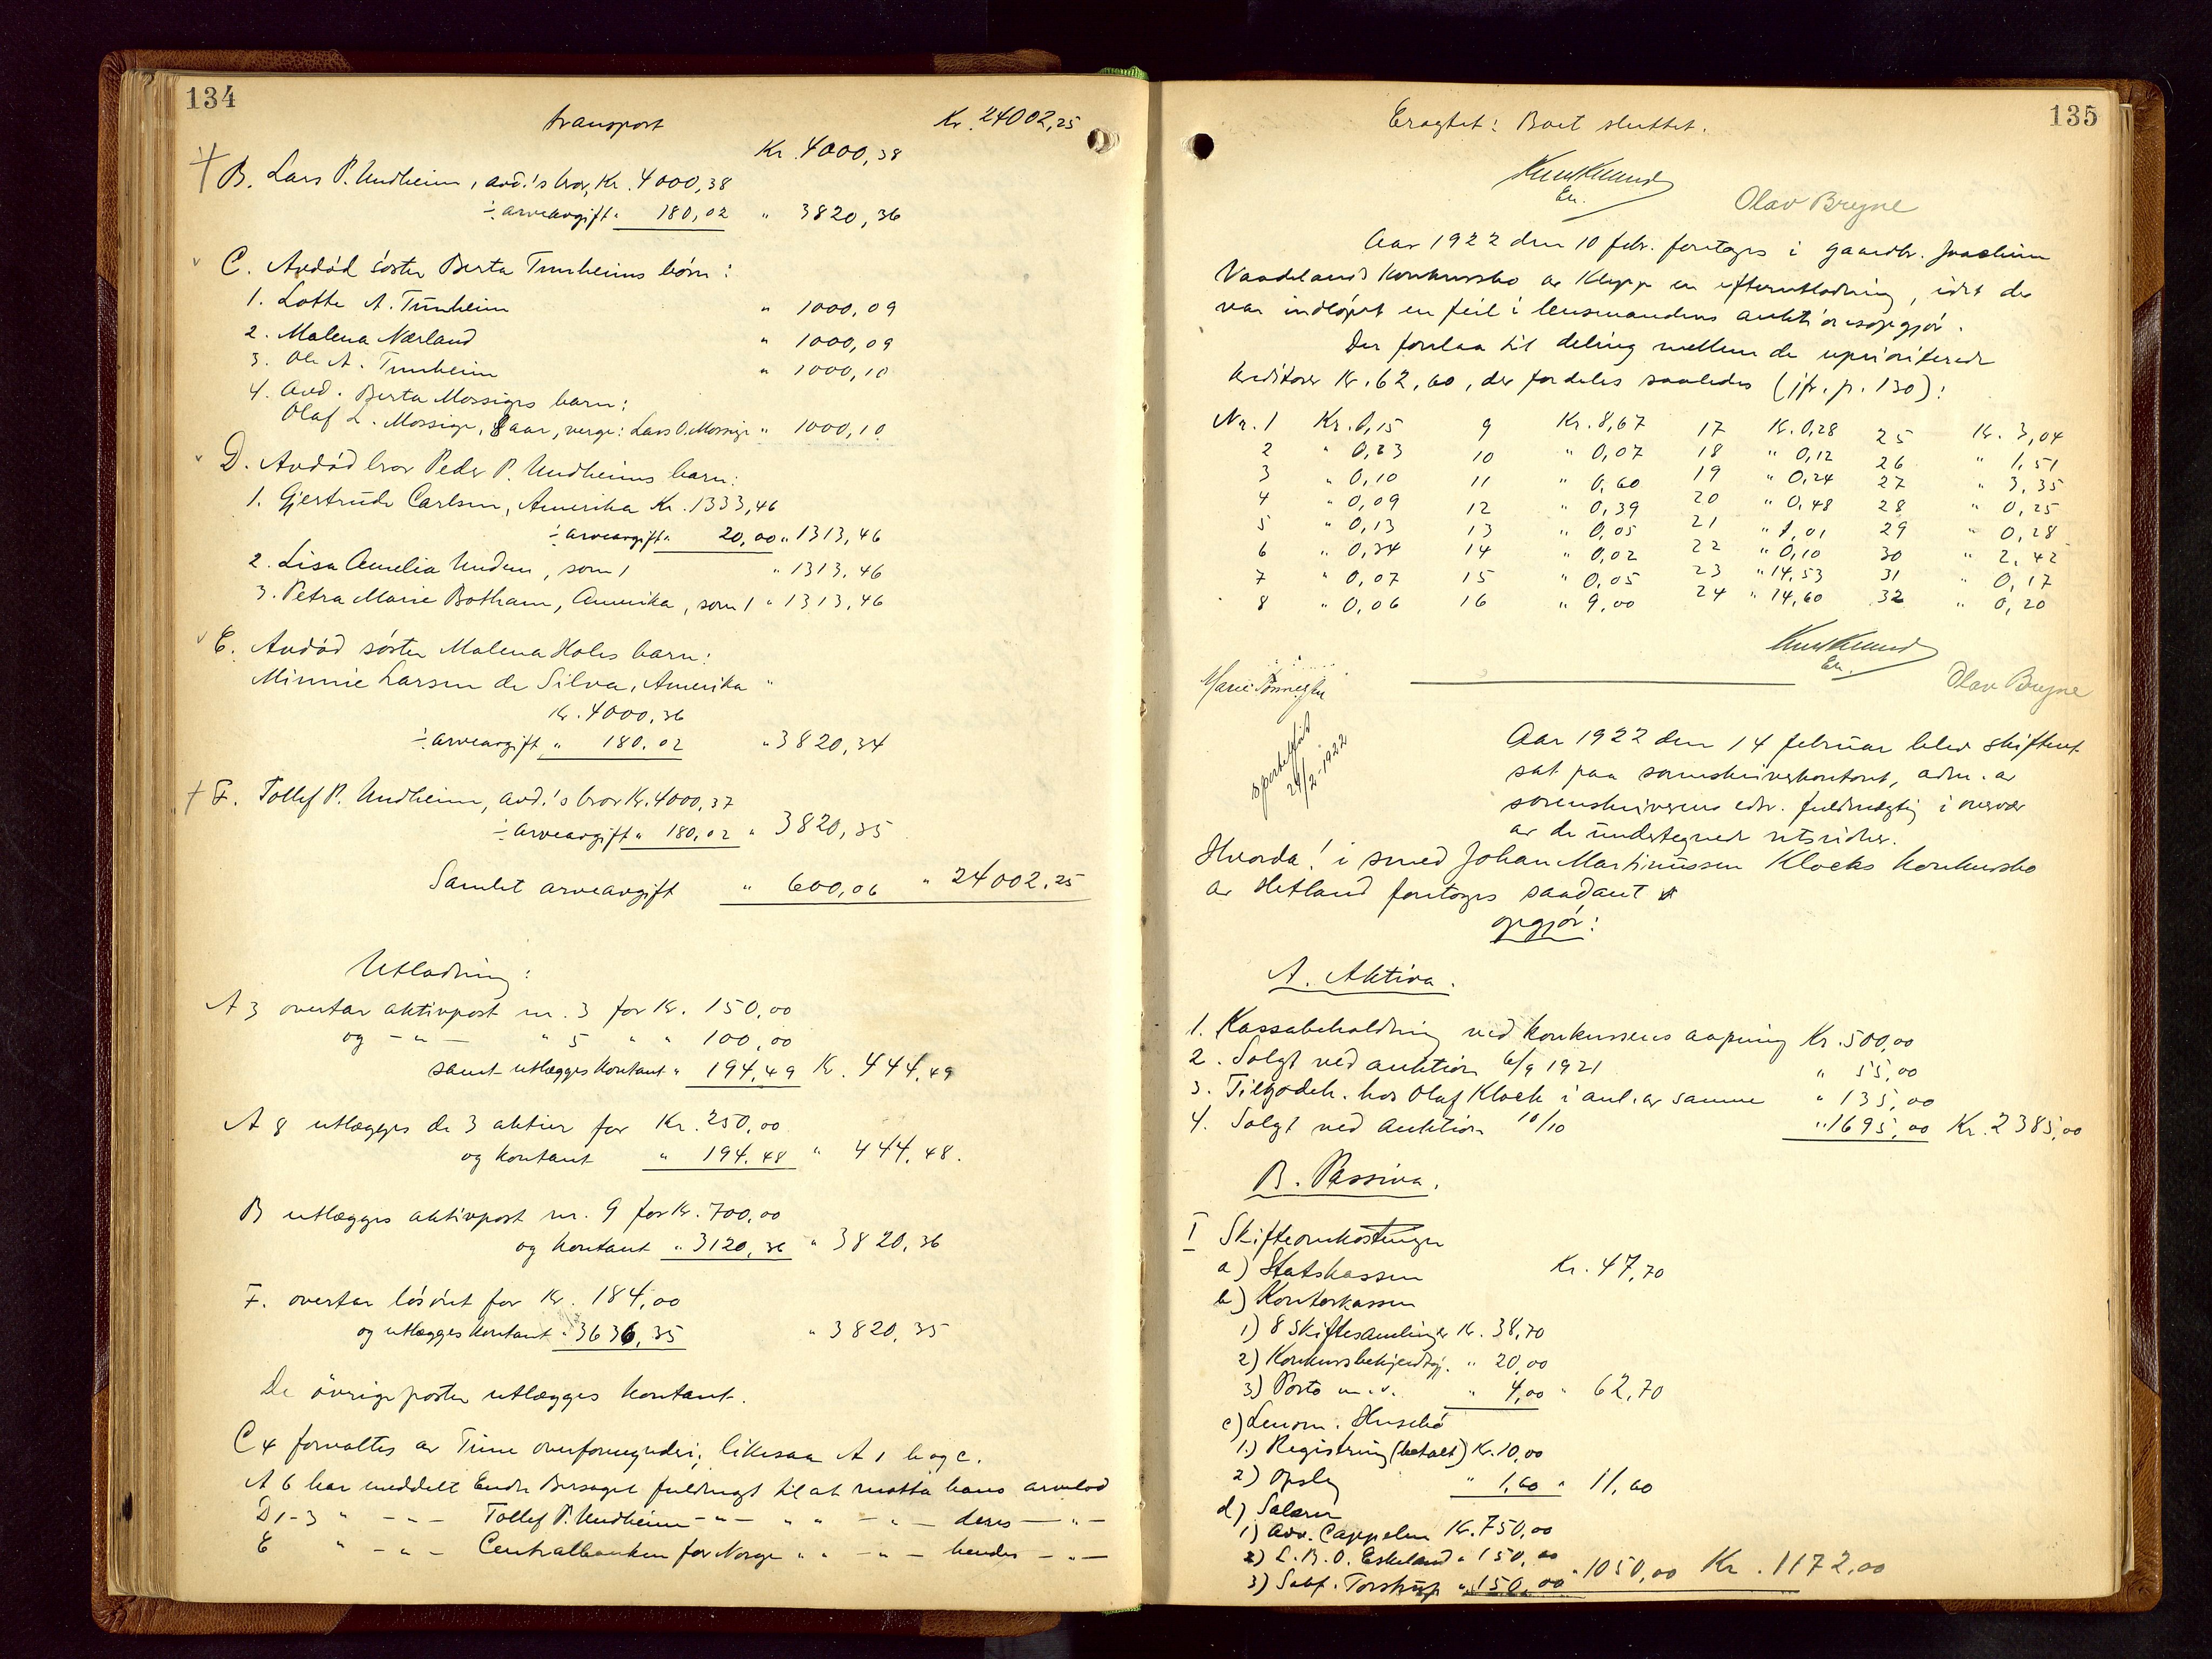 134
transport Kr. 24002,25
Kr. 4000,38
B. Lars P. Undheim, avd.'s bror, Kr. 4000,38
÷ arveavgift " 180,02 " 3820,36
C. Avdød søster Berta Tunheims børn:
1. Lotte A. Tunheim " 1000,09
2. Malena Nærland " 1000,09
3. Ole A. Tunheim " 1000,10
4. Avd. Berta Mossiges barn:
Olaf L. Mossige, 8 aar, verge: Lars O. Mossige " 1000,10
D. Avdød bror Peder P. Undheims barn:
1. Gjertrude Carlsen, Amerika Kr. 1333,46
÷ arveavgift " 20,00 " 1313,46
2. Lisa Amelia Undem, som 1 " 1313,46
3. Petra Marie Botham, Amerika, som 1 " 1313,46
E. Avdød søster Malena Holes barn:
Minnie Larsen de Silva, Amerika "
Kr. 4000,36
÷ arveavgift " 180,02 " 3820,34
F. Tollef P. Undheim, avd.'s bror Kr. 4000,37
÷ arveavgift " 180,02 " 3820,35
Samlet arveavgift " 600,06 " 24002,25
Utlodning:
A 3 overtar aktivpost nr. 3 for Kr. 150,00
og - " - " 5 " " 100,00
samt utlægges kontant " 194,49 Kr. 444,49
A 8 utlægges de 3 aktier for Kr. 250,00
og kontant " 194,48 " 444,48.
B utlægges aktivpost nr. 9 for Kr. 700,00
og kontant " 3120,36 " 3820,36
F. overtar løsøret for Kr. 184,00
og utlægges kontant " 3636,35 " 3820,35
De øvrige poster utlægges kontant.
C 4 forvaltes av Time overformynderi, likesaa A 1 b og c.
A 6 har meddelt Endre Bersagel fuldmagt til at motta hans arvelod
D 1-3 " - " - Tollef P. Undheim - " - " " - " - deres - " -
E " - " - Centralbanken for Norge " " - " - hendes - " -
135
Eragtet: Boet sluttet.
En.
Olav Bryne
Aar 1922 den 10 febr. foretoges i gaardbr. Joachim
Vaadelands konkursbo av Klepp en efterutlodning, idet der
var indløpet en feil i lensmandens auktionsopgjør.
Der forelaa til deling mellem de uprioriterede
kreditorer Kr. 62,60, der fordeles saaledes (jfr. p. 130):
Nr. 1 Kr. 0,15 9 Kr. 8,67 17 Kr. 0,28 25 Kr. 3,04
2 " 0,23 10 " 0,07 18 " 0,12 26 " 1,51
3 " 0,10 11 " 0,60 19 " 0,24 27 " 3,35
4 " 0,09 12 " 0,39 20 " 0,48 28 " 0,25
5 " 0,13 13 " 0,05 21 " 1,01 29 " 0,28
6 " 0,34 14 " 0,02 22 " 0,10 30 " 2,42
7 " 0,07 15 " 0,05 23 " 14,53 31 " 0,17
8 " 0,06 16 " 9,00 24 " 14,60 32 " 0,20
En.
Olav Bryne
Marie
24/2-1922
Aar 1922 den 14 februar blev skifteret
sat paa sorenskriverkontoret, adm. av
sorenskriverens edsv. fuldmægtig i overvær
av de undertegnede retsvidner.
Hvorda! i smed Johan Martinussen Klocks konkursbo
av Hetland foretoges saadant
opgjør:
A. Aktiva.
1. Kassabeholdning ved konkursens aapning Kr. 500,00
2. Solgt ved auktion 6/9 1921 " 55,00
3. Tilgodeh. hos Olaf Klock i anl. av samme " 135,00
4. Solgt ved auktion 10/10 " 1695,00 Kr. 2385,00
B. Passiva.
I Skifteomkostninger
a) Statskassen Kr. 47,70
b) Kontorkassen
1) 8 skiftesamlinger Kr. 38,70
2) Konkursbekjendtgj. " 20,00
3) Porto m.v. " 4,00 " 62,70
c) Lensm. Husebø
1.) Registrering (betalt) Kr. 10,00
2) Opslag " 1,60 " 11,60
d) Salærer
1) Adv. Cappelen Kr. 750,00
2) L.B.O. Eskeland " 150,00
3) Sakf. Torstrup " 150,00 " 1050,00 Kr. 1172,00